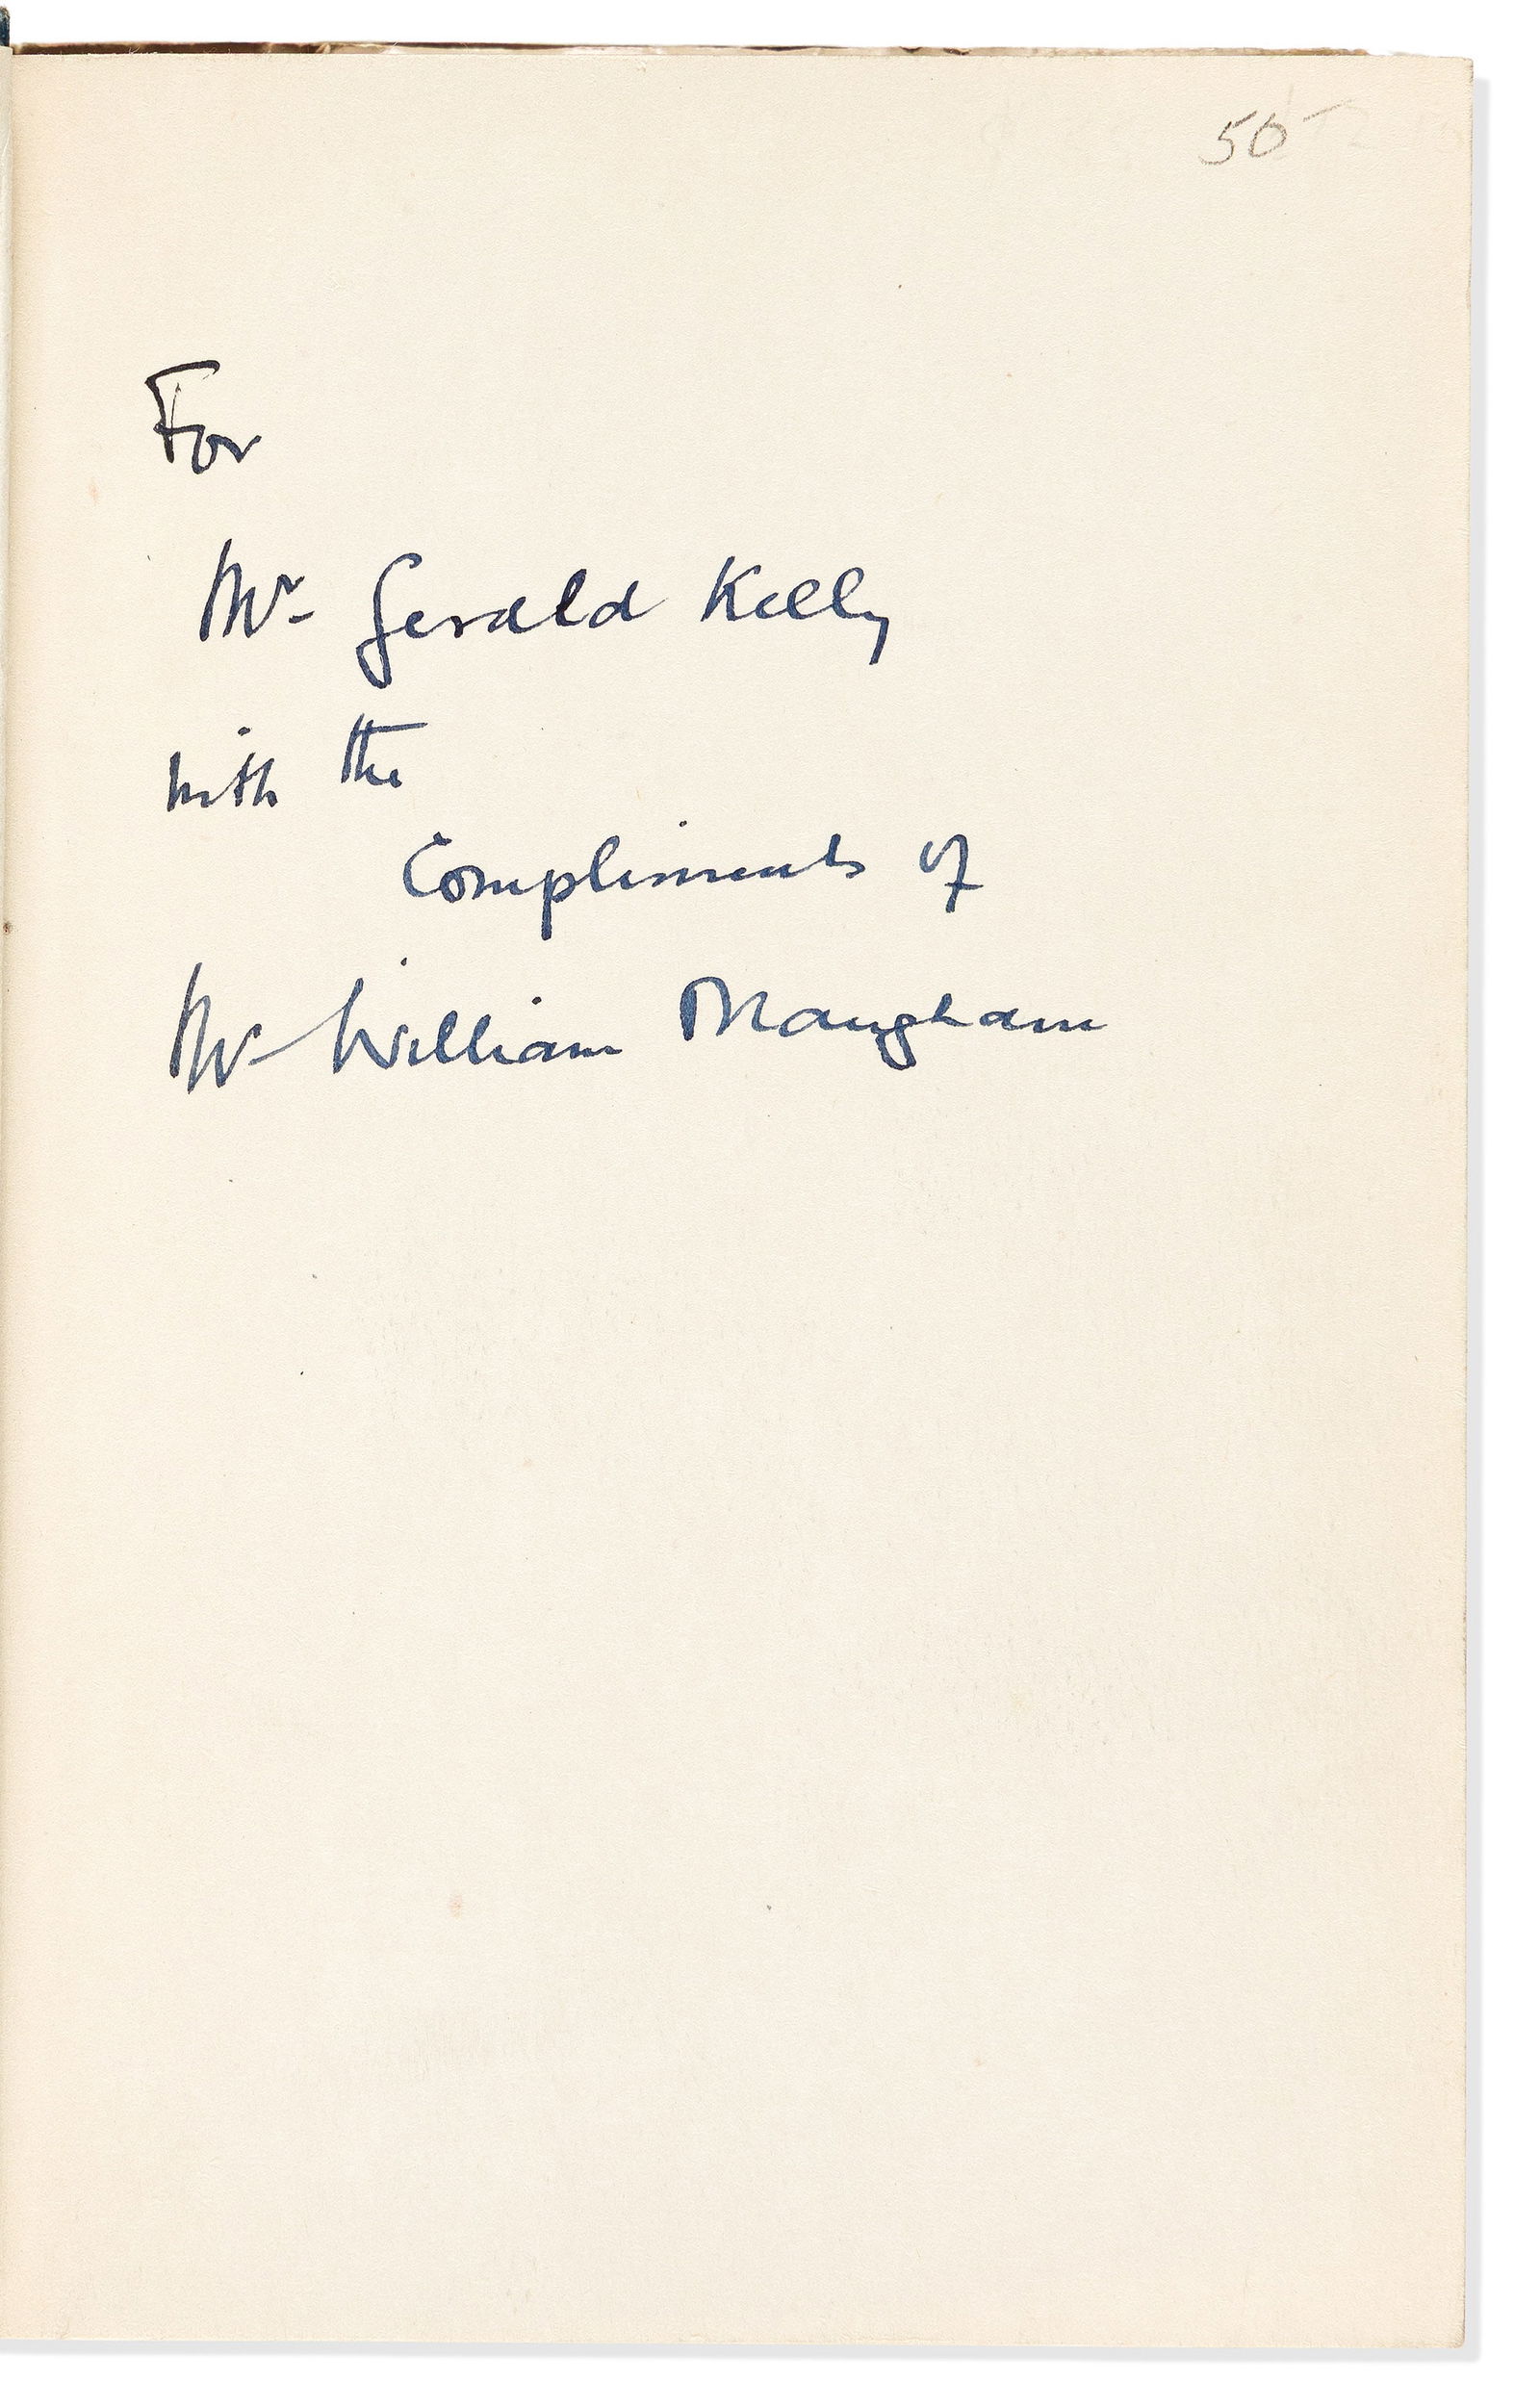 50-
For
Mr. Gerald Kelly
with the
Compliments of
Mr William Maugham